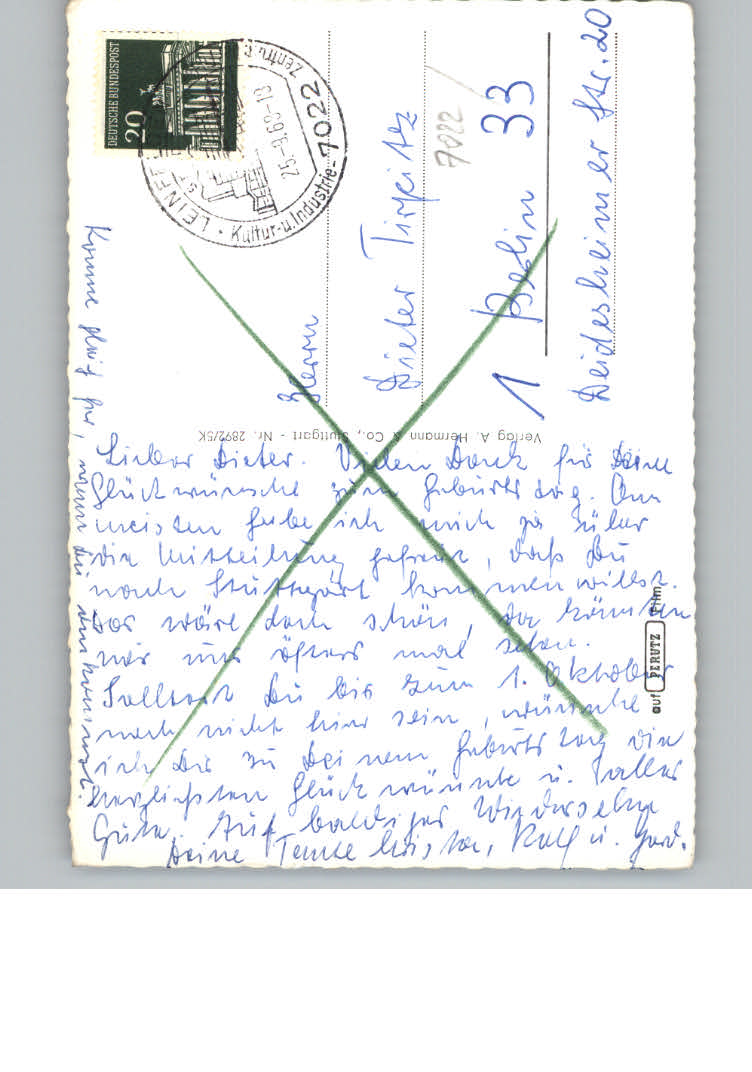 DEUTSCHE BUNDESPOST
20
7022 LEINFE
Zentru
25.-9.68-18
Kultur-u.Industrie-
Herrn
Dieter Tirpitz
7022
1 Berlin 33
Deidesheimer Str. 20
Verlag A. Hermann & Co., Stuttgart - Nr. 2892/5K
auf PERUTZ Film
Lieber Dieter. Vielen Dank für Deine
Glückwünsche zum Geburtstag. Am
meisten habe ich mich ja über
die Mitteilung gefreut, daß Du
nach Stuttgart kommen willst.
Das wäre doch schön, da könnten
wir uns öfters mal sehen.
Solltest Du bis zum 1. Oktober
noch nicht hier sein, wünsche
ich Dir zu Deinem Geburtstag die
herzlichsten Glückwünsche u. alles
Gute. Auf baldiges Wiedersehn
Deine Tante Christa, Rolf u. Gerd.
Komme gleich her, wenn du ankommst.